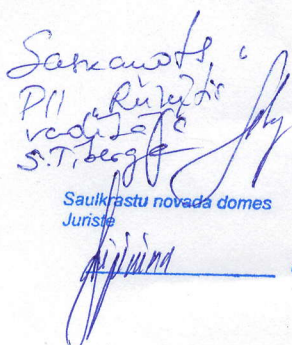 Saskaņots:
PII "Rūķītis"
vadītāja
S.Tiberga
Saulkrastu novada domes
Juriste